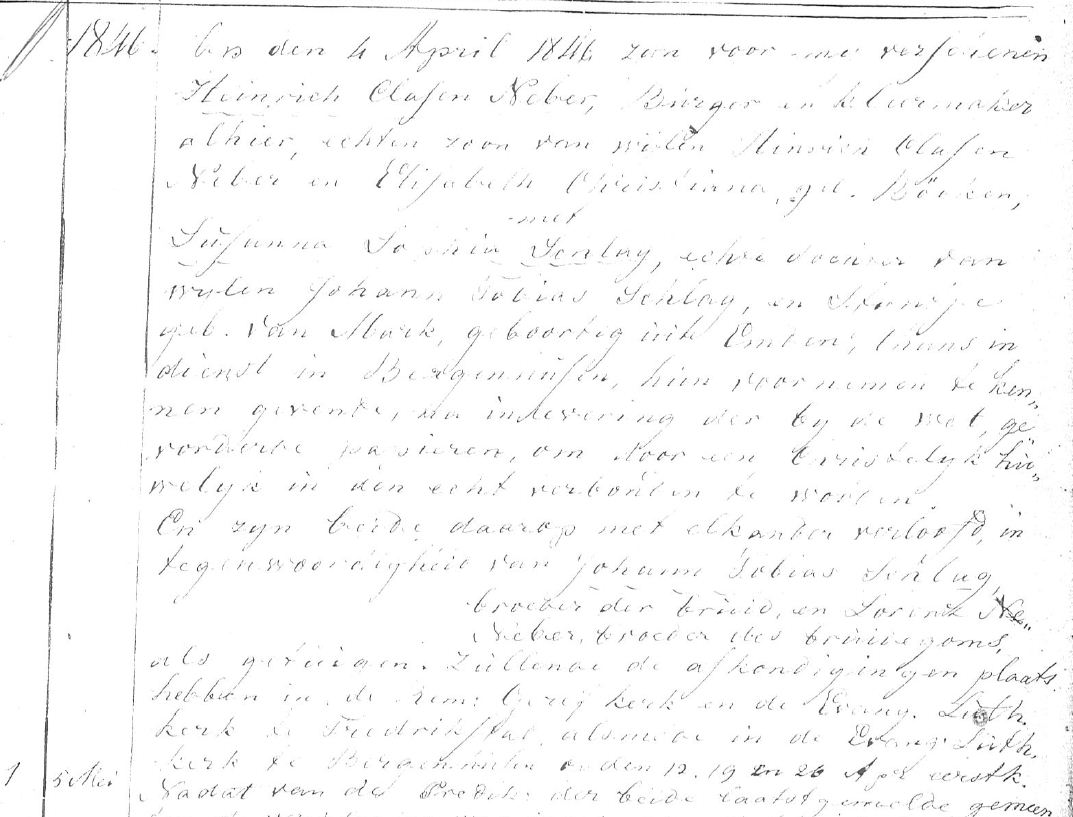 1846. Op den 4 April 1846 zyn voor my verschenen
Heinrich Clasen Neber, Bürger en kleermaker
alhier, echten zoon van wijlen Hinrich Clasen
Neber en Elisabeth Christiana, geb. Böcken,
met
Susanna Sophia Schlag, echte dochter van
wylen Johann Tobias Schlag, en
geb. van Mark, geboortig uit Emden, thans in
dienst in Bergenhusen, hun voornemen te ken„
nen gevende, na inlevering der by de wet, ge„
vorderde papieren, om door een Christelyk hu„
welyk in den echt verbonden te worden.
En zyn beide daarop met elkander verloofd, in
tegenwoordigheid van Johann Tobias Schlag,
broeder der bruid, en Lorenz Ne„
Neber, broeder des bruidegoms,
als getuigen. Zullende de afkondigingen plaats
hebben in de Rem: Geref kerk en de Evang. Luth.
kerk te Fredrikstad, alsmede in de Evang Luth.
kerk te Bergenhusen den 12. 19 en 26 Apr eerstk.
1 5 Mei Nadat van de Predik: der beide laatstgemelde gemeen